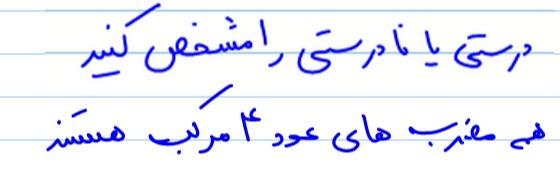 درستی یا نادرستی را مشخص کنید
همه مضرب های عدد ۴ مرکب هستند